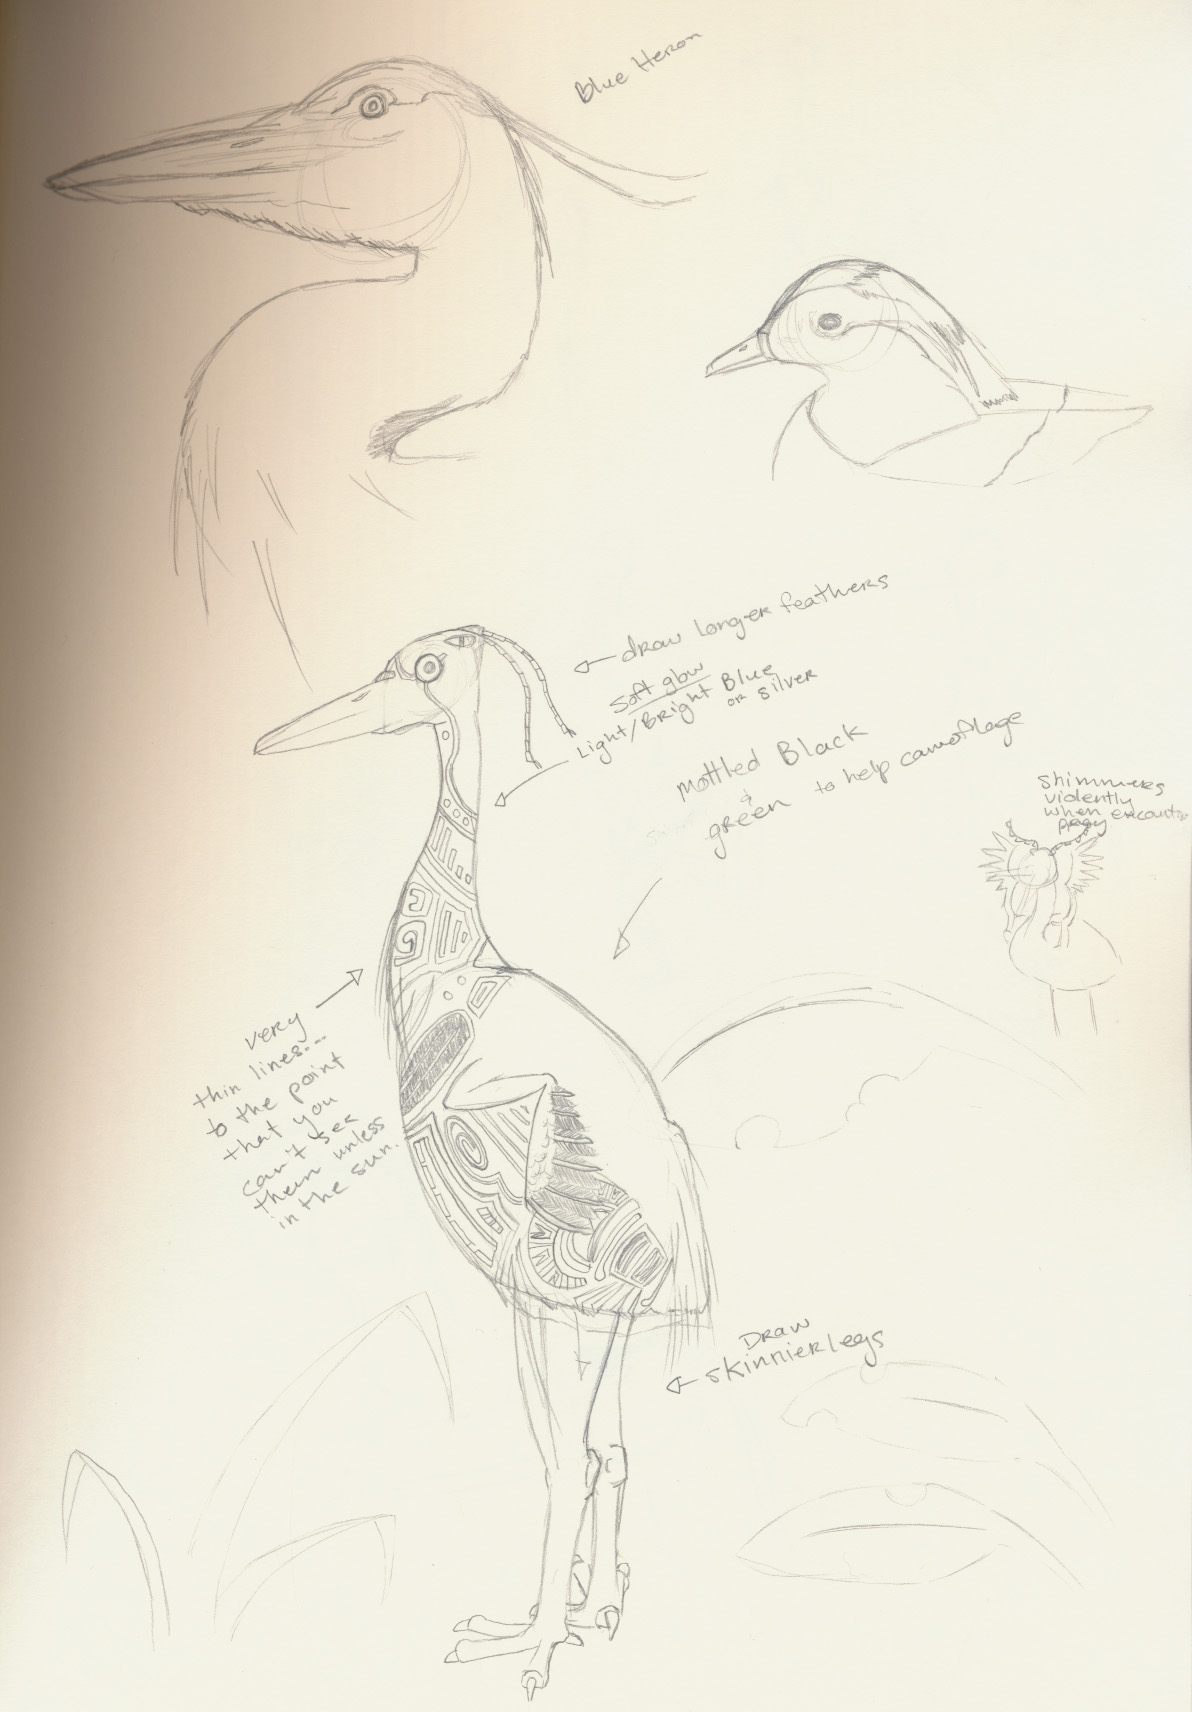 Blue Heron
draw longer feathers
Soft glow
Light/Bright Blue
or silver
Mottled Black
&
green to help camoflage
shimmers
violently
when encounters
prey
very
thin lines...
to the point
that you
can't see
them unless
in the sun.
Draw
skinnier legs